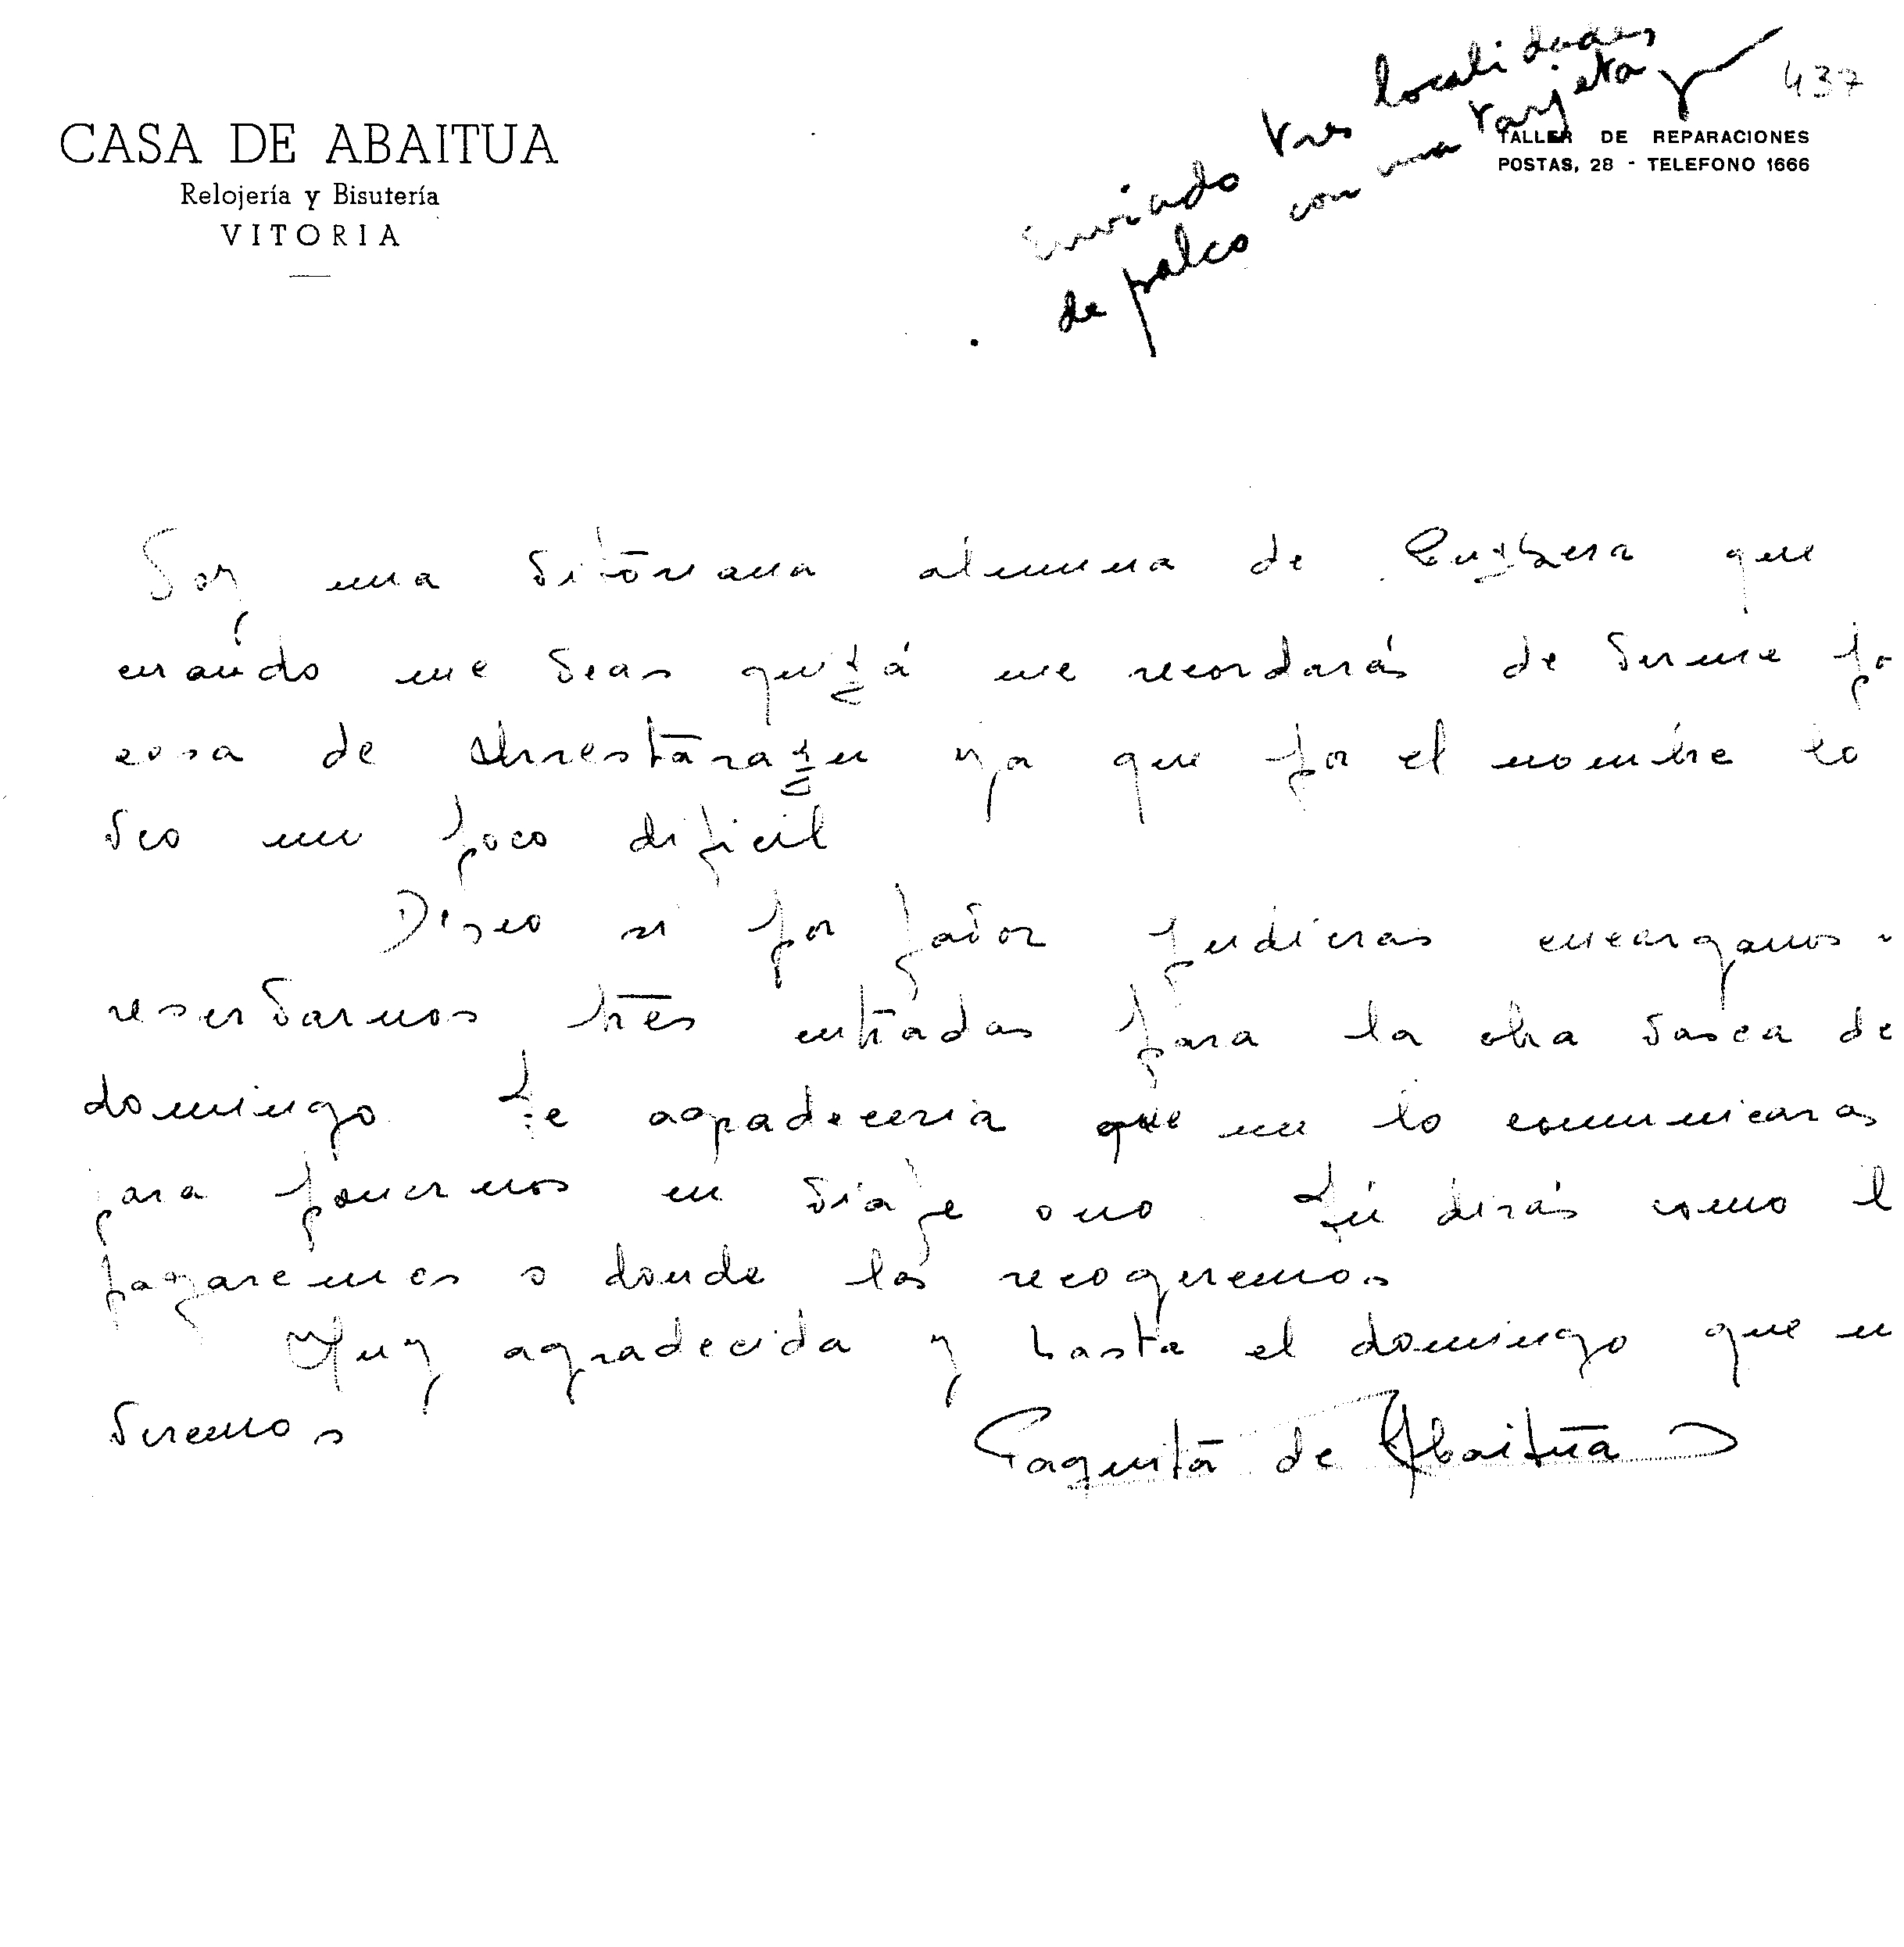 CASA DE ABAITUA
Relojería y Bisutería
VITORIA
Enviado tres localidades
de palco con una tarjeta
437
TALLER DE REPARACIONES
POSTAS, 28 - TELEFONO 1666
Soy una vitoriana alumna de que
cuando me veas quizá me recordarás de verme por
cosa de ya que por el nombre lo
veo un poco dificil
Diseo si por favor pudieras encargarnos o
reservarnos tres entradas para la obra vasca de
domingo te agradeceria que me lo comunicaras
para ponernos en viaje o no. Tú dirás como l
pagaremos o donde las recogeremos
Muy agradecida y hasta el domingo que n
veremos
Paquita de Abaitua